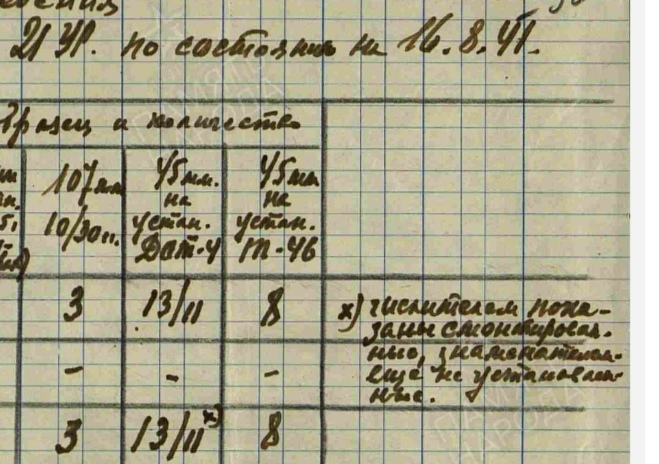 21 УР. по состоянию на 16.8.41.
Образец и количество
107 мм
10/30 г.
45 мм.
на
устан.
Дот-4
45 мм
на
устан.
т-46
3 13/11 8
- - -
3 13/11 х) 8
х) числителем пока-
заны смонтирован.
ные, знаменателем
еще не установлен-
ные.
ПАМЯТЬ
НАРОДА